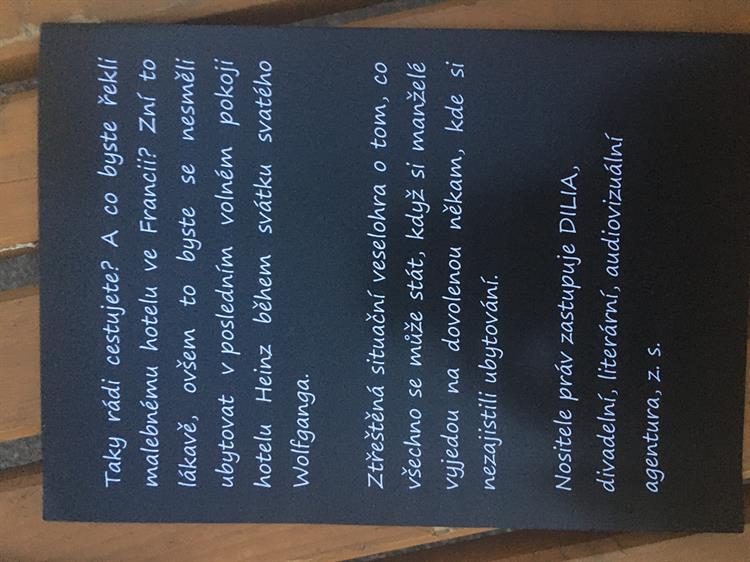 Taky rádi cestujete? A co byste řekli
malebnému hotelu ve Francii? Zní to
lákavě, ovšem to byste se nesměli
ubytovat v posledním volném pokoji
hotelu Heinz během svátku svatého
Wolfganga.
Ztřeštěná situační veselohra o tom, co
všechno se může stát, když si manželé
vyjedou na dovolenou někam, kde si
nezajistili ubytování.
Nositele práv zastupuje DILIA,
divadelní, literární, audiovizuální
agentura, z. s.